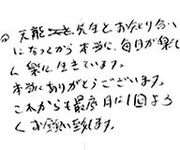 天龍先生と、お知り合い
になってから本当に、毎日が楽し
く楽に生きています。
本当にありがとうございます。
これからも最底月に1回よろ
しくお願い致します。